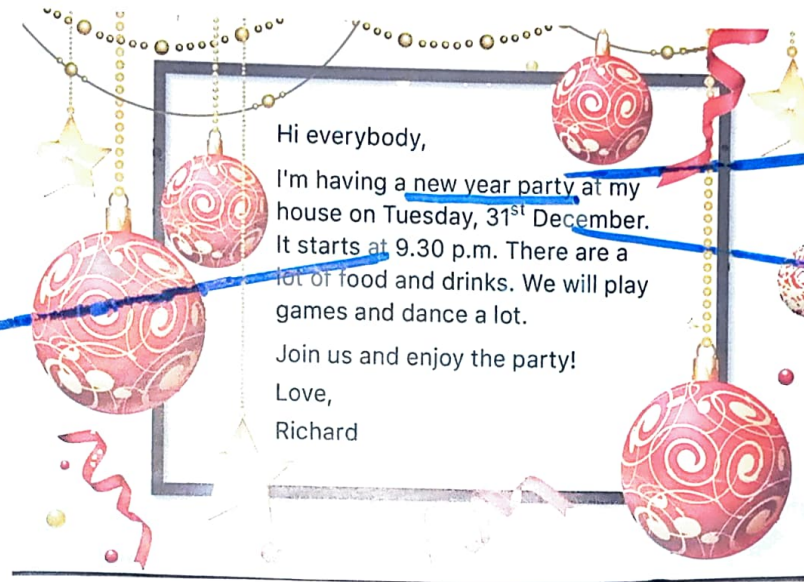 Hi everybody,
I'm having a new year party at my
house on Tuesday, 31st December.
It starts at 9.30 p.m. There are a
lot of food and drinks. We will play
games and dance a lot.
Join us and enjoy the party!
Love,
Richard